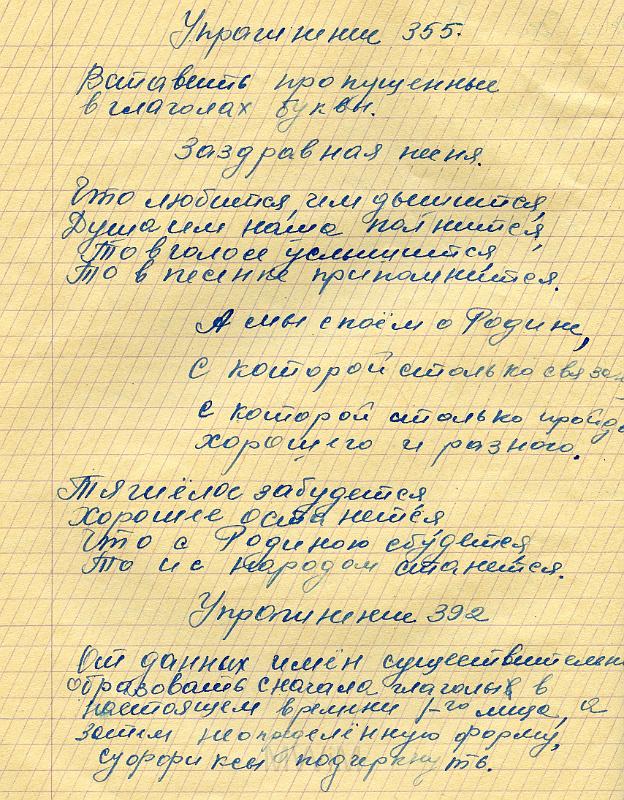 Упражнение 355.
Вставить пропущенные
в глаголах буквы.
Заздравная песня.
Что любится, чем дышится,
Душа чем наша полнится,
То в голосе услышится,
То в песенке припомнится.
А мы споём о Родине,
с которой столько связан
с которой столько пройде
хорошего и разного.
Тяжёлое забудется
Хорошее останется
Что с Родиною сбудется,
То и с народом станется.
Упражнение 392
От данных имён существительн
образовать сначала глаголы в
настоящем времени 1-го лица, а
затем неопределённую форму,
суффиксы подчеркнуть.